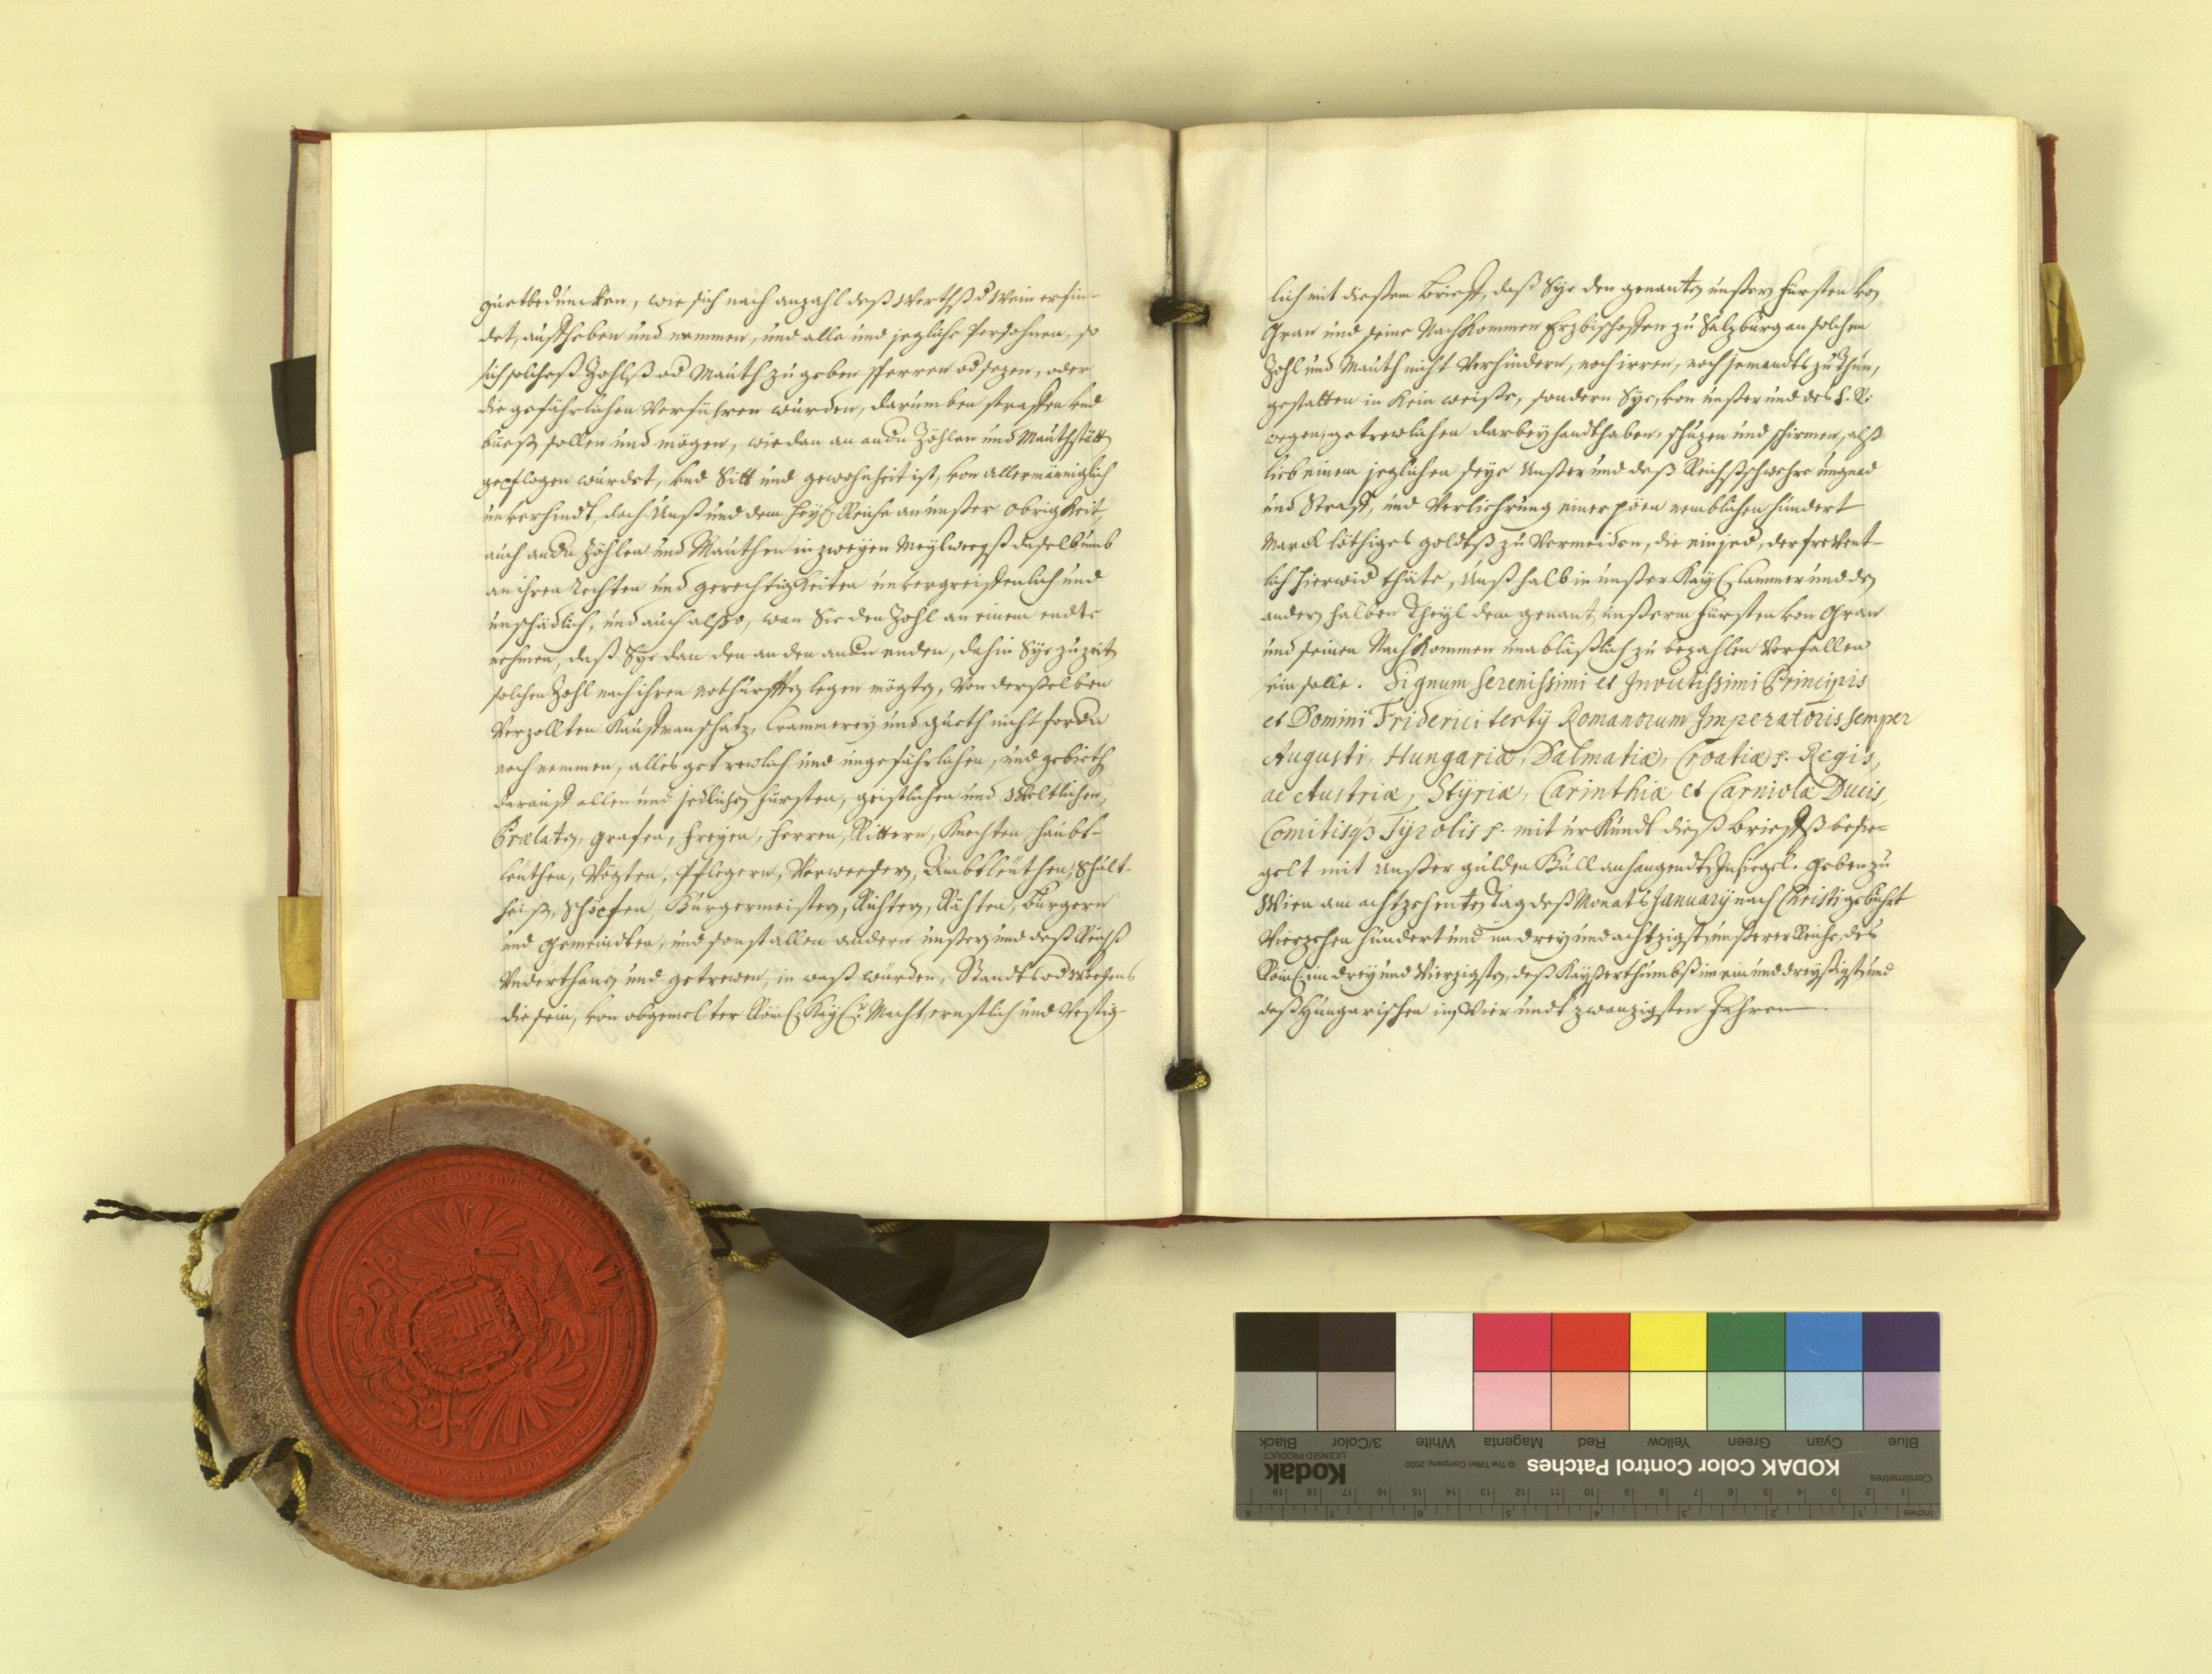 guetbeduncken, wie sich nach anzahl deß Werthß d Wein erfin-
det, aufheben und nemmen, und alle und jegliche Persohnen, so
sich solcheß Zohlß od Mauth zugeben sperren od sezen, oder
die gefährlichen Verführen wurden, darumben straffen und
büeß sollen und mögen, wie dan an andn Zöhlen und Mauthstätt
gepflogen würdet, und Sitt und gewohnheit ist, von allermänniglich
unverhindt, doch Unß und dem Heyl Reiche an unßer obrigkeit,
auch andn Zöhlen und Mauthen in zweyen Meylweegß daselb umb
an ihren rechten und gerechtigkeiten unvergreiffenlich und
unschädlich, und auch alßo, wan Sie den Zohl an einem endte
nehmen, daß Sye dan den an den andn enden, dahin Sye zu zeit
solchen Zohl nach ihren nothurfften legen mögtn, von derselben
Verzollten Kaufmanschatz, Crammerey und gueth nicht fordn
noch nemmen, alles getrewlich und ungefährlichen, und gebieth
darauf allen und jedlichen fürsten, geistlichen und Weltlichen,
Prælatn, grafen, freyen, herren, Rittern, Knechten, haubt-
leüthen, Vögten, Pflegern, Verweesern, Ambtleüthen, Schult-
heiß, Schöpfen, Burgermeistern, Richtern, Räthen, Burgern
und gemeindten, und sonst allen andern unßern und deß Reichß
Underthanen und getrewen, in waß würden, Standts od Weeßens
die sein, von obgemelter Röml: Kayl: Macht, ernstlich und Vestig-
lich mit dießem brieff, daß Sye den genanten unßern fürsten von
Gran und seine Nachkommen Erzbischoffen zu Salzburg an solchen
Zohl und Mauth nicht Verhindern, noch irren, noch jemandts zu thun,
gestatten in kein weiße, sondern Sye, von unßer und des H: R:
wegen, getrewlichen darbey handthaben, schuzen und schirmen, alß
lieb einem jeglichen seye Unßer und deß Reichß schwehre ungnad
und Straff, und Verliehrung einer pöen nemblichen hundert
Marck löthiges goldtß zu Vermeiden, die ein jed, der frevent-
lich hierwid thäte, Unß halb in unßer Kayl Cammer und den
andern halben Theyl dem genant unßerm fürsten von Gran
und seinen Nachkommen unabläßlich zu bezahlen Verfallen
sein solle. Signum Serenissimi et Invictissimi Principis
et Domini Friderici tertÿ Romanorum Imperatoris semper
Augusti, Hungariæ, Dalmatiæ, Croatiæ p. Regis,
ac Austriæ, Styriæ, Carinthiæ et Carniolæ Ducis,
Comitisq3 Tyrolis p. mit urkundt dieß brieffß besie-
gelt mit unßer gulden Bull anhangendten Insiegel. Geben zu
Wien am achtzehenten Tag deß Monats January nach Christi gebuhrt
Vierzehen hundert und im drey und achtzigsten, unßerer Reiche, des
Röml: im drey und Vierzigsten, deß Kayßerthumbß im ein und dreyßigst, und
deß Hungarischen im Vier undt zwanzigsten Jahren
KODAK Color Control Patches
Kodak
LICENSED PRODUCT
© The Tiffen Company, 2000
Blue Cyan Green Yellow Red Magenta White 3/Color Black
Centimetres
1 2 3 4 5 6 7 8 9 10 11 12 13 14 15 16 17 18 19
Inches
1 2 3 4 5 6 7 8